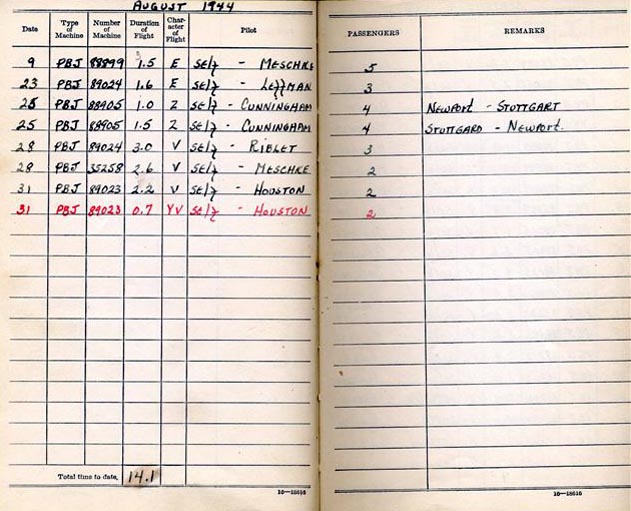 AUGUST 1944
Date Type of Machine Number of Machine Duration of Flight Char- acter of Flight Pilot PASSENGERS REMARKS
9 PBJ 88899 1.5 E Self - MESCHKE 5
23 PBJ 89024 1.6 E Self - LEffMAN 3
25 PBJ 88905 1.0 Z Self - CUNNINGHAM 4 NEWPORT - STUTTGART
25 PBJ 88905 1.5 Z Self - CUNNINGHAM 4 STUTTGARD - NEWPORT.
28 PBJ 89024 3.0 V Self - RIBLET 3
28 PBJ 35258 2.6 V Self - MESCHKE 2
31 PBJ 89023 2.2 V Self - HOUSTON 2
31 PBJ 89023 0.7 YV Self - HOUSTON 2
Total time to date, 14.1
16—18616 16—18616